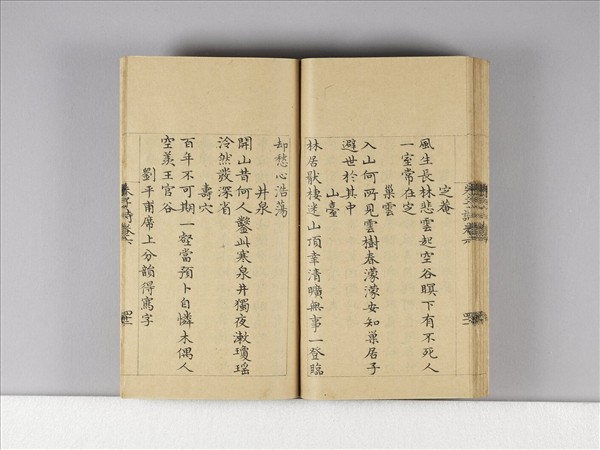 定庵
風生長林悲雲起空谷暝下有不死人
一室常在定
巢雲
入山何所見雲樹春濛濛安知巢居子
避世於其中
山臺
林居獸棲迷山頂幸清曠無事一登臨
却愁心浩蕩
井泉
開山昔何人鑿此寒泉井獨夜漱瓊瑶
泠然發深省
壽穴
百年不可期一壑當預卜自憐木偶人
空羨王官谷
劉平甫席上分韻得寫字